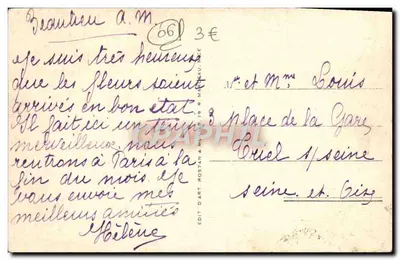 Beaulieu A.M
06
3€
Je suis très heureuse
que les fleurs soient
arrivés en bon état.
Il fait ici un temps
merveilleux. nous
rentrons à Paris à la
fin du mois. Je
vous envoie mes
meilleurs amitiés
Hélène
et Mme Louis
place de la Gare
Triel s/seine
Seine et Oise